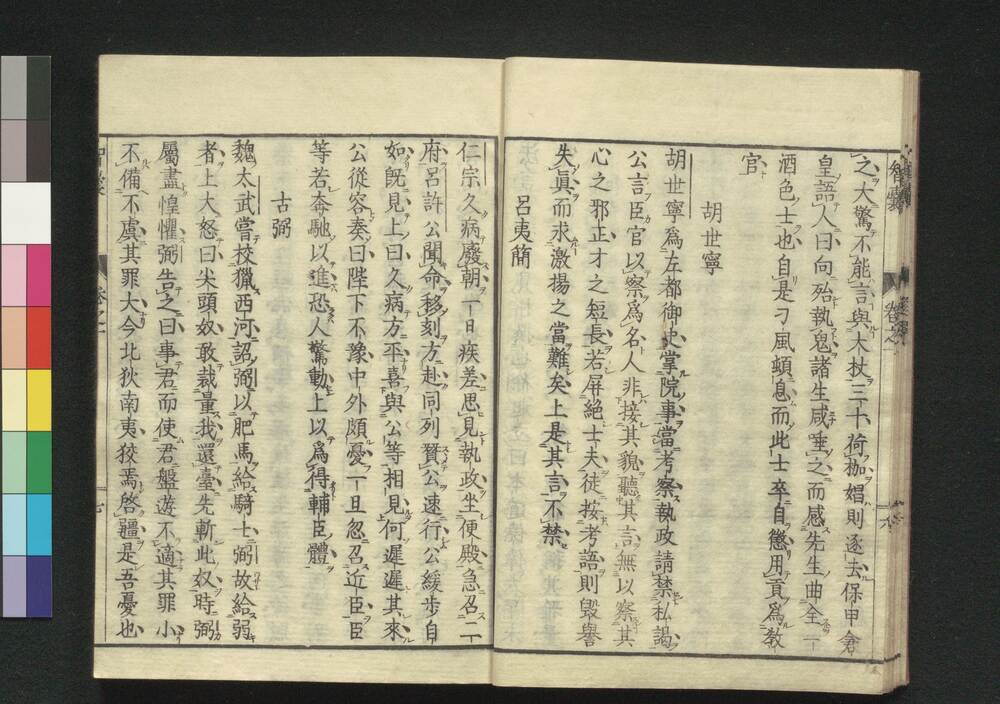 之大驚不能言與大杖三十荷枷娼則逐去保申僉
皇語人曰向殆執鬼諸生咸唾之而感先生曲全一
酒色士也自是刁風頓息而此士卒自懲用貢爲教
官
胡世寧
胡世寧爲左都御史掌院事當考察執政請禁私謁
公言臣官以察爲名人非接其貌聽其言無以察其
心之邪正才之短長若屏絕士夫徒按考語則毀譽
失眞而求激揚之當難矣上是其言不禁
呂夷簡
仁宗久病廢朝一日疾差思見執政坐便殿急召二
府呂許公聞命移刻方赴同列贊公速行公緩步自
如旣見上曰久病方平喜與公等相見何遲遲其來
公從容奏曰陛下不豫中外頗憂一旦忽召近臣臣
等若奔馳以進恐人驚動上以爲得輔臣體
古弼
魏太武嘗校獵西河詔弼以肥馬給騎士弼故給弱
者上大怒曰尖頭奴敢裁量我還臺先斬此奴時弼
屬盡惶懼弼告之曰事君而使君盤遊不適其罪小
不備不虞其罪大今北狄南夷狡焉啓疆是吾憂也